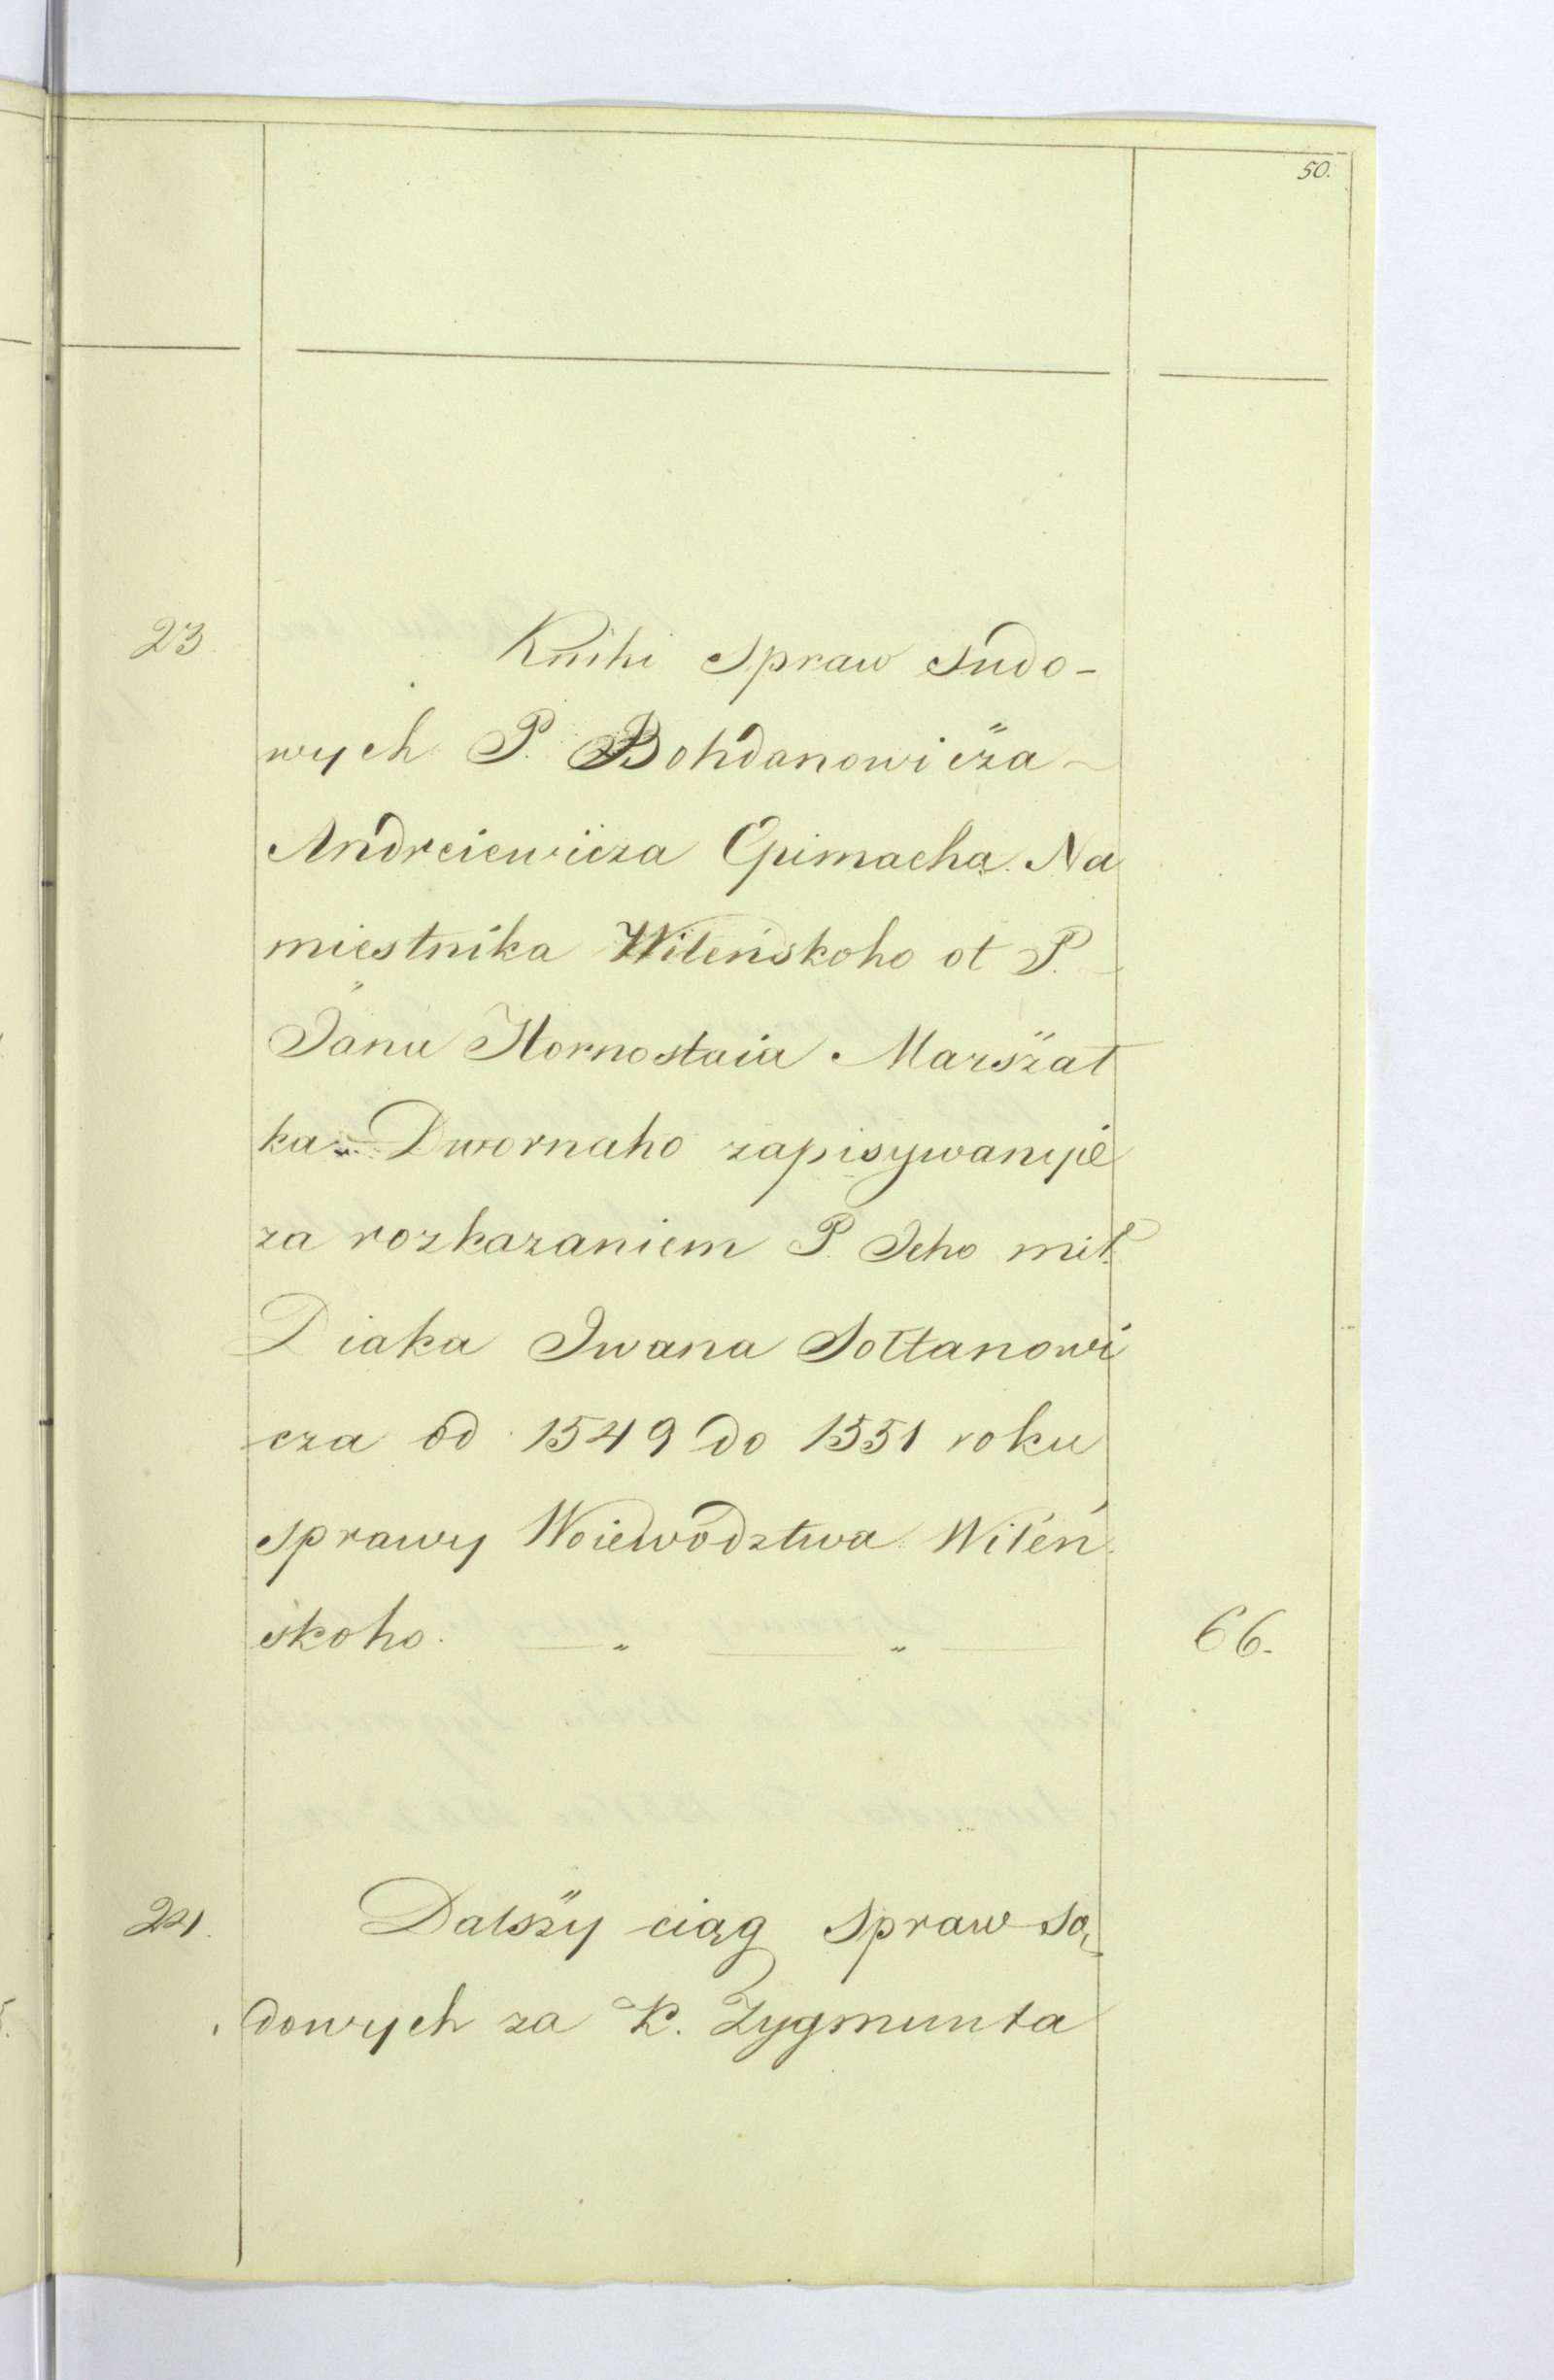 50.
23. Knihi Spraw Sudo-
wych P. Bohdanowicza
Andreiewicza Opimacha Na
miestnika Wilenskoho ot P.
Jana Hornostaia Marszał
ka Dwornaho zapisywanyie
za rozkazaniem P. Jeho mił.
Diaka Iwana Sołtanowi
cza od 1549 do 1551 roku
sprawy Woiewodztwa Wilen
skoho. 66.
24. Dalszy ciąg Spraw Są
dowych za K. Zygmunta